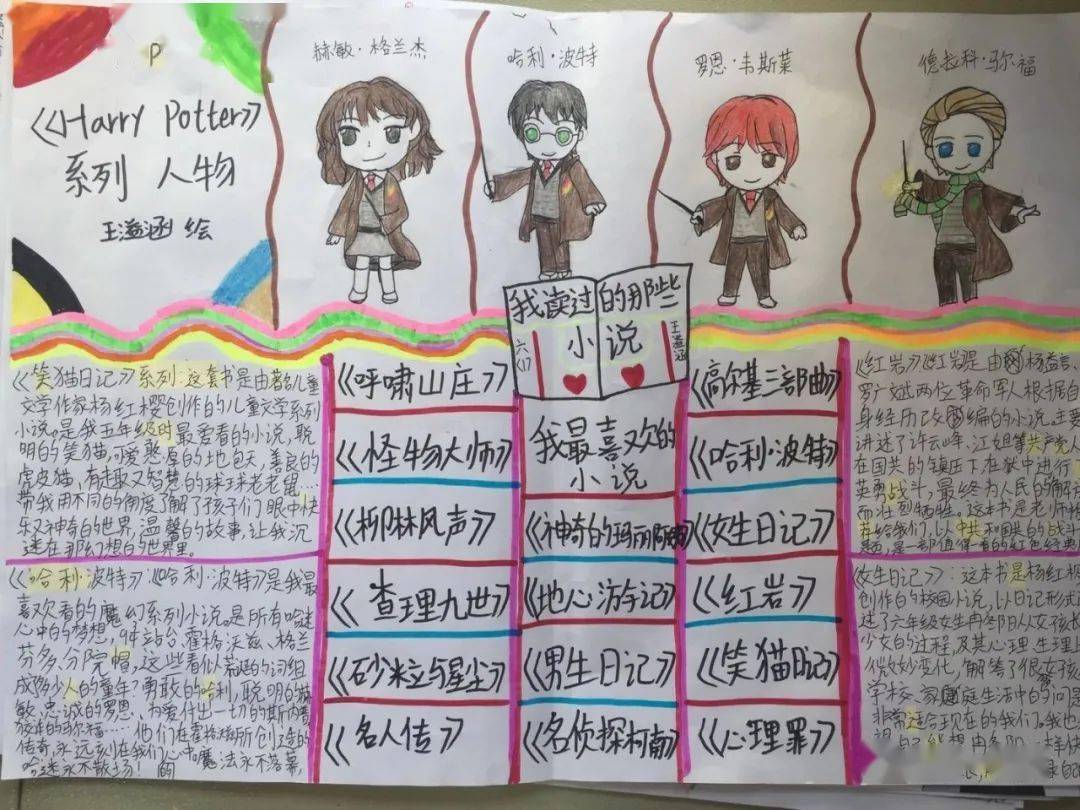 P
《Harry Potter》
系列 人物
王溢涵 绘
赫敏·格兰杰
哈利·波特
罗恩·韦斯莱
德拉科·马尔福
我读过
的那些
小说
六(1)
王溢涵
《笑猫日记》系列:这套书是由著名儿童
文学作家杨红樱创作的儿童文学系列
小说。是我五年级时最爱看的小说,聪
明的笑猫,可爱憨厚的地包天,善良的
虎皮猫,有趣又智慧的球球老老鼠……
带我用不同的角度了解了孩子们眼中快
乐又神奇的世界,温馨的故事,让我沉
迷在那幻想的世界里。
《哈利·波特》:《哈利·波特》是我最
喜欢看的魔幻系列小说。是所有哈迷
心中的梦想,9¾站台、霍格沃兹、格兰
芬多、分院帽,这些看似荒诞的词组
成多少人的童年?勇敢的哈利,聪明的赫
敏,忠诚的罗恩,为爱付出一切的斯内普,
的马尔福……他们在霍格沃兹所创造的
传奇,永远刻在我们心中。魔法永不落幕,
哈迷永不散场! 的
《呼啸山庄》
《怪物大师》
《柳林风声》
《查理九世》
《砂粒与星尘》
《名人传》
我最喜欢的
小说
《神奇的玛丽阿姨》
《地心游记》
《男生日记》
《名侦探柯南》
《高尔基三部曲》
《哈利·波特》
《女生日记》
《红岩》
《笑猫日记》
《心理罪》
《红岩》:《红岩》是由杨益言、
罗广斌两位革命军人根据自
身经历改编的小说。主要
讲述了许云峰、江姐等共产党人
在国共的镇压下在狱中进行
英勇战斗,最终为人民的解放
而壮烈牺牲。这本书是老师推
荐给我们,以中共和国共的战斗
题,是一部值得看的红色经典
《女生日记》:这本书是杨红樱
创作的校园小说,以日记形式
述了六年级女生冉冬阳从女孩长
少女的过程,及其心理、生理上
微妙变化,解答了很多女孩
学校、家庭生活中的问题
非常适合现在的我们。我也